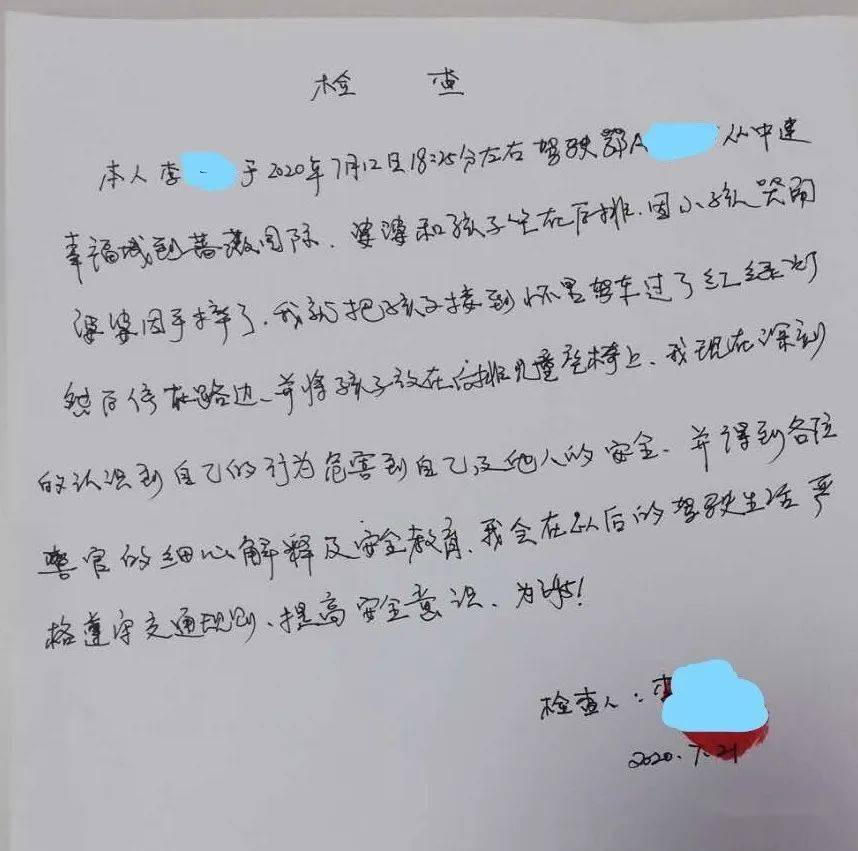 检 查
本人李 于2020年7月12日18:25分左右驾驶鄂A 从中建
幸福城到蔷薇国际、婆婆和孩子坐在后排、因小孩哭闹
婆婆因手摔了、我就把孩子接到怀里驾车过了红绿灯
然后停在路边、并将孩子放在后排儿童座椅上、我现在深刻
的认识到自己的行为危害到自己及他人的安全、并得到各位
警官的细心解释及安全教育、我会在以后的驾驶生活严
格遵守交通规则、提高安全意识、为
检查人:李
2020.7.21